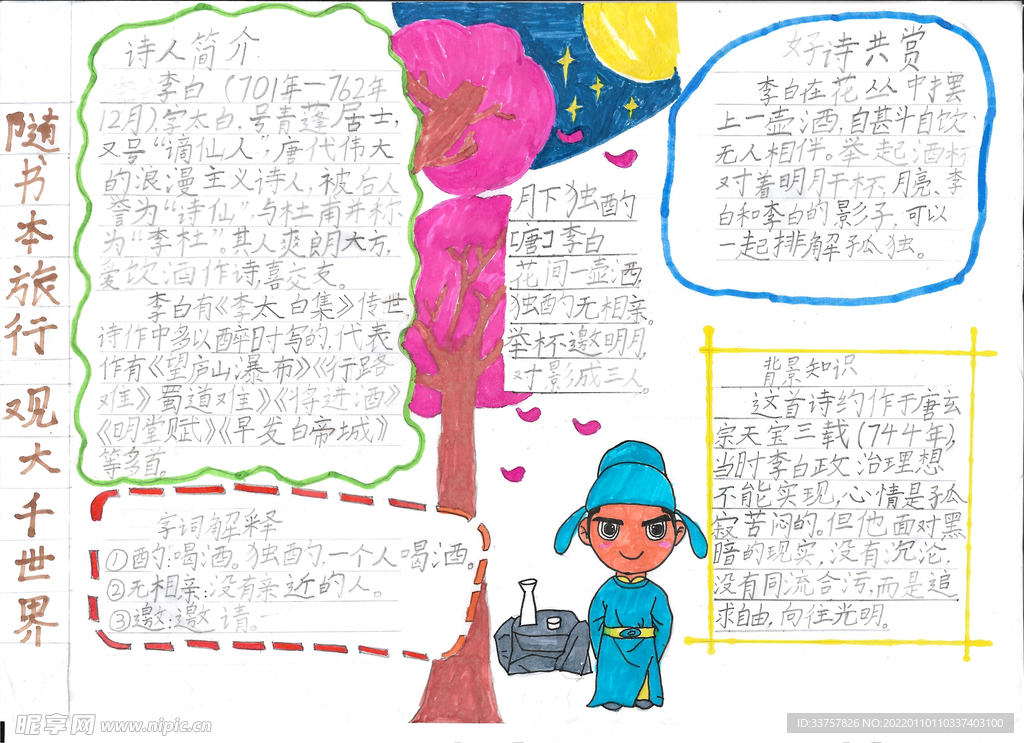 随书本旅行 观大千世界
诗人简介
李白（701年—762年
12月），字太白，号青莲居士，
又号“谪仙人”，唐代伟大
的浪漫主义诗人，被后人
誉为“诗仙”，与杜甫并称
为“李杜”。其人爽朗大方，
爱饮酒作诗，喜交友。
李白有《李太白集》传世，
诗作中多以醉时写的，代表
作有《望庐山瀑布》《行路
难》蜀道难》《将进酒》
《明堂赋》《早发白帝城》
等多首。
字词解释
①酌：喝酒。独酌，一个人喝酒。
②无相亲：没有亲近的人。
③邀：邀请。
月下独酌
[唐]李白
花间一壶酒，
独酌无相亲。
举杯邀明月，
对影成三人。
好诗共赏
李白在花丛中摆
上一壶酒，自甚斗自饮，
无人相伴。举起酒杯
对着明月干杯，月亮、李
白和李白的影子，可以
一起排解孤独。
背景知识
这首诗约作于唐玄
宗天宝三载（744年），
当时李白政治理想
不能实现，心情是孤
寂苦闷的。但他面对黑
暗的现实，没有沉沦，
没有同流合污，而是追
求自由，向往光明。
昵享网 www.nipic.cn
ID:33757826 NO:20220110110337403100